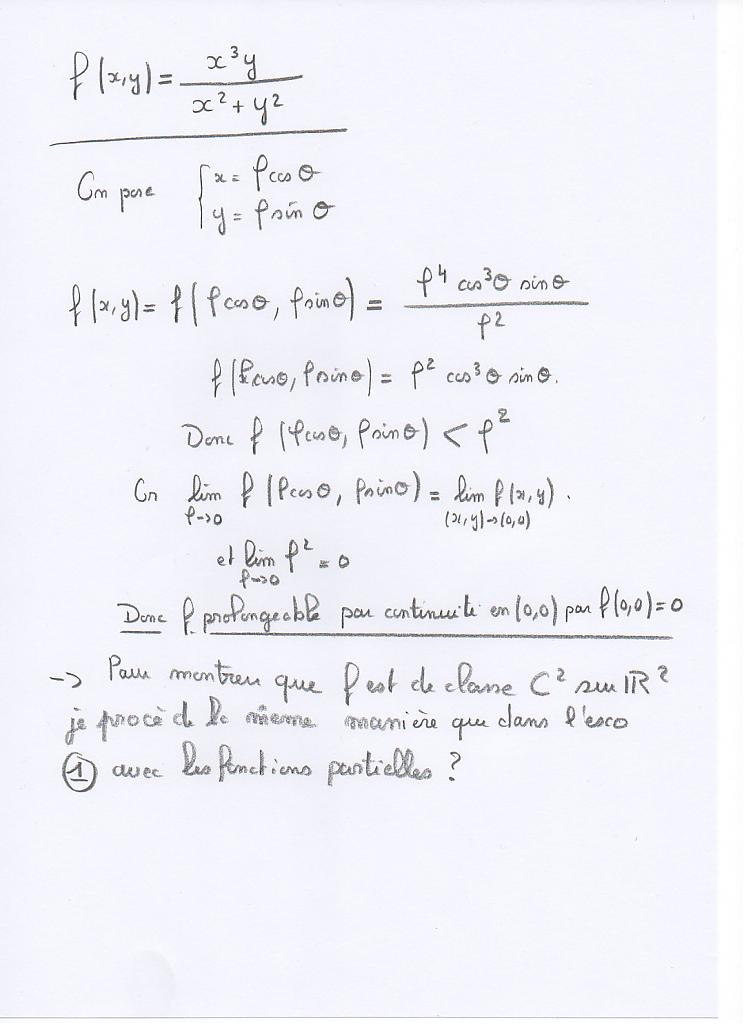 f(x,y) = x³y / x² + y²
On pose { x = ρcos θ
y = ρsin θ
f(x,y) = f(ρcosθ, ρsinθ) = ρ⁴ cos³θ sinθ / ρ²
f(ρcosθ, ρsinθ) = ρ² cos³θ sinθ.
Donc f (ρcosθ, ρsinθ) < ρ²
Or lim ρ→0 f (ρcosθ, ρsinθ) = lim (x,y)→(0,0) f(x,y).
et lim ρ→0 ρ² = 0
Donc f prolongeable par continuité en (0,0) par f(0,0)=0
-> Pour montrer que f est de classe C² sur ℝ²
je procède de la même manière que dans l'exo
① avec les fonctions partielles ?